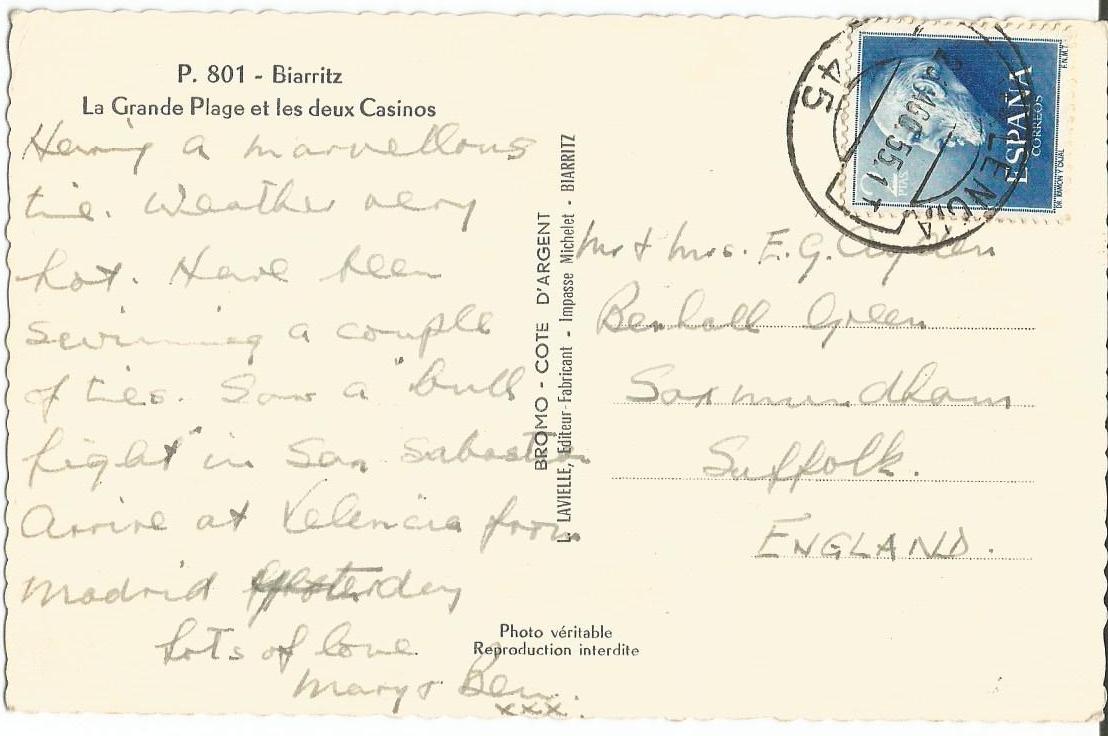 P. 801 - Biarritz
La Grande Plage et les deux Casinos
Having a marvellous
time. Weather very
hot. Have been
swimming a couple
of times. Saw a "bull
fight" in San Sabastian
Arrive at Valencia from
Madrid yesterday
Lots of love
Mary & Ben.
xxx.
BROMO - COTE D'ARGENT
L. LAVIELLE, Editeur-Fabricant - Impasse Michelet - BIARRITZ
Photo véritable
Reproduction interdite
45
VALENCIA
AGO 55
2 PTAS
ESPAÑA
CORREOS
F.N.M.T.
DR. RAMON Y CAJAL
Mr & Mrs. E. G.
Benhall Green
Saxmundham
Suffolk.
ENGLAND.